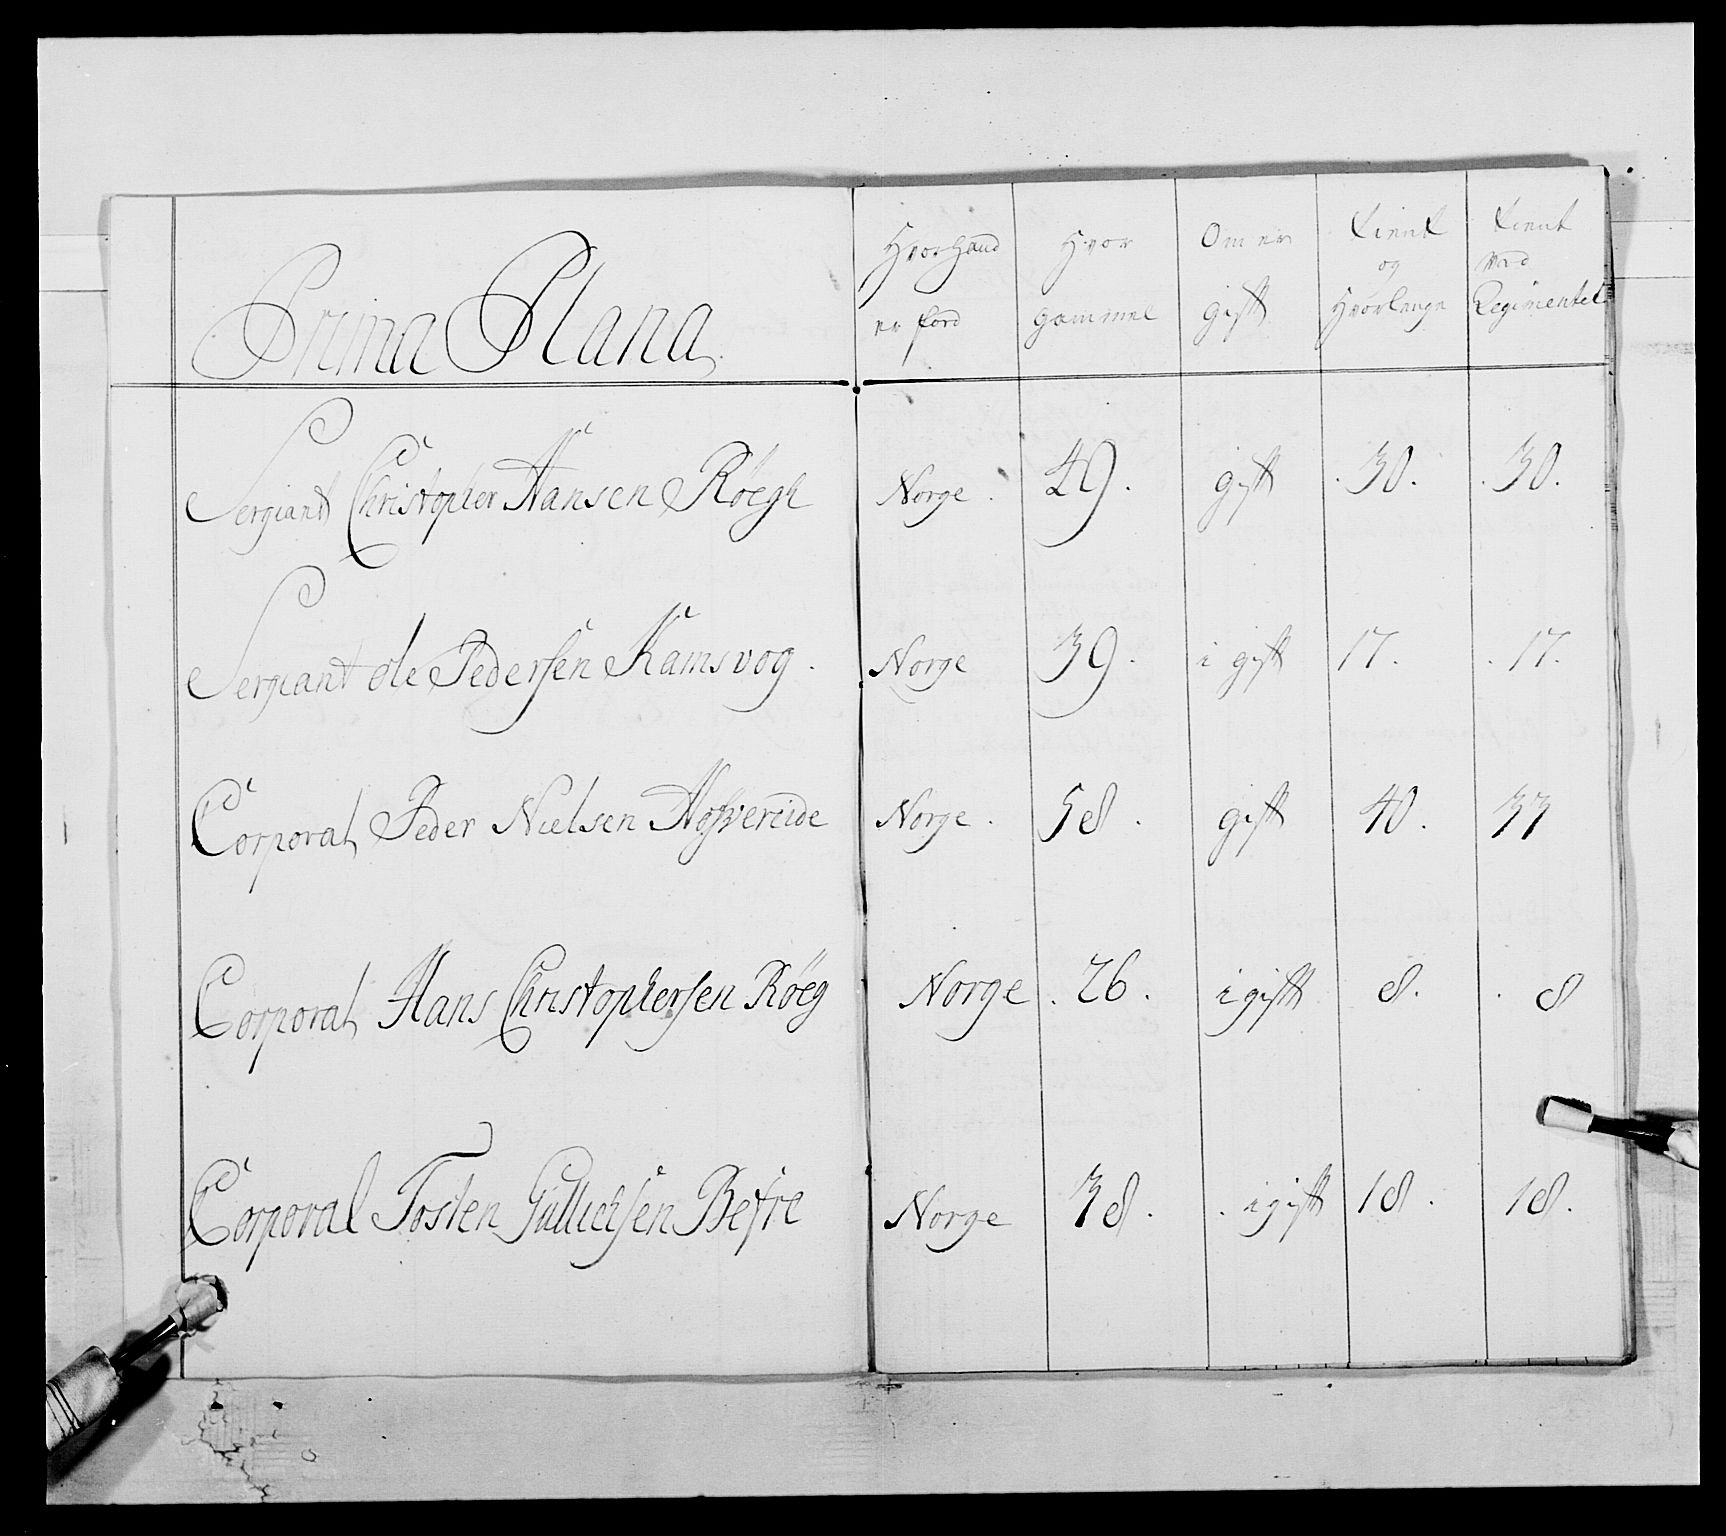 Prima Plana
Hvor hand er förd
Hvor gammel
Om er gift
tient og Hvorlenge
tient ved Regimentet
Sergiant Christopher Hansen Röegh Norge. 49. gift .30. .30.
Sergiant Ole Pedersen Ramsvog. Norge 39. i gift 17. .17.
Corporal Peder Nielsen Norge. 58. gift 40. 33
Corporal Hans Christophersen Röeg Norge .26. i gift 8. .8
Corporal Tosten Norge 38. .i gift 18. 18.